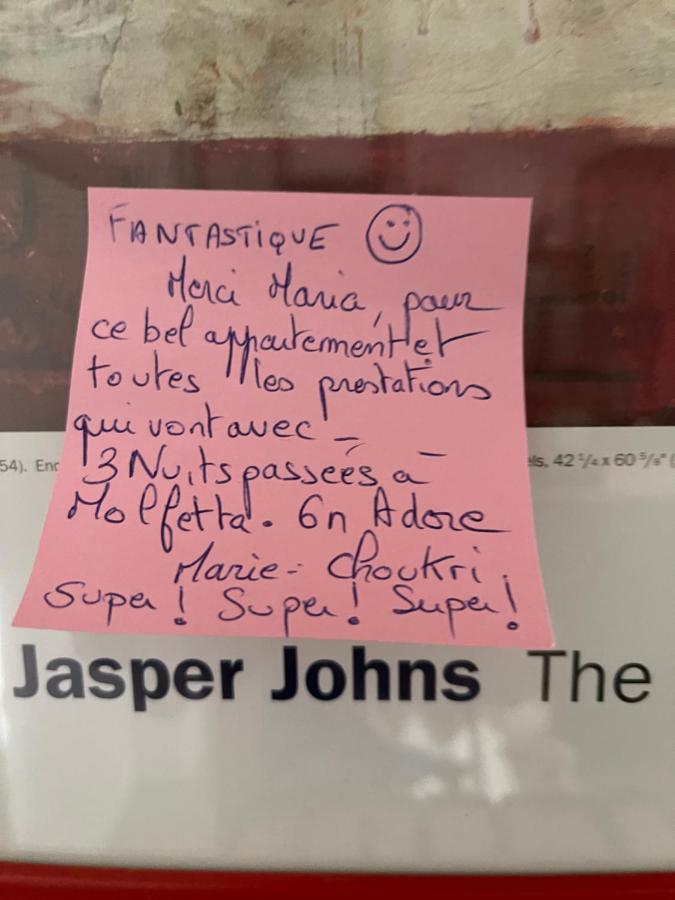 FANTASTIQUE
Merci Maria, pour
ce bel appartement et
toutes les prestations
qui vont avec –
3 Nuits passées à
Molfetta. On Adore
Marie - Choukri.
Super! Super! Super!
54). Enc
els, 42 1/4 x 60 5/8" (
Jasper Johns The